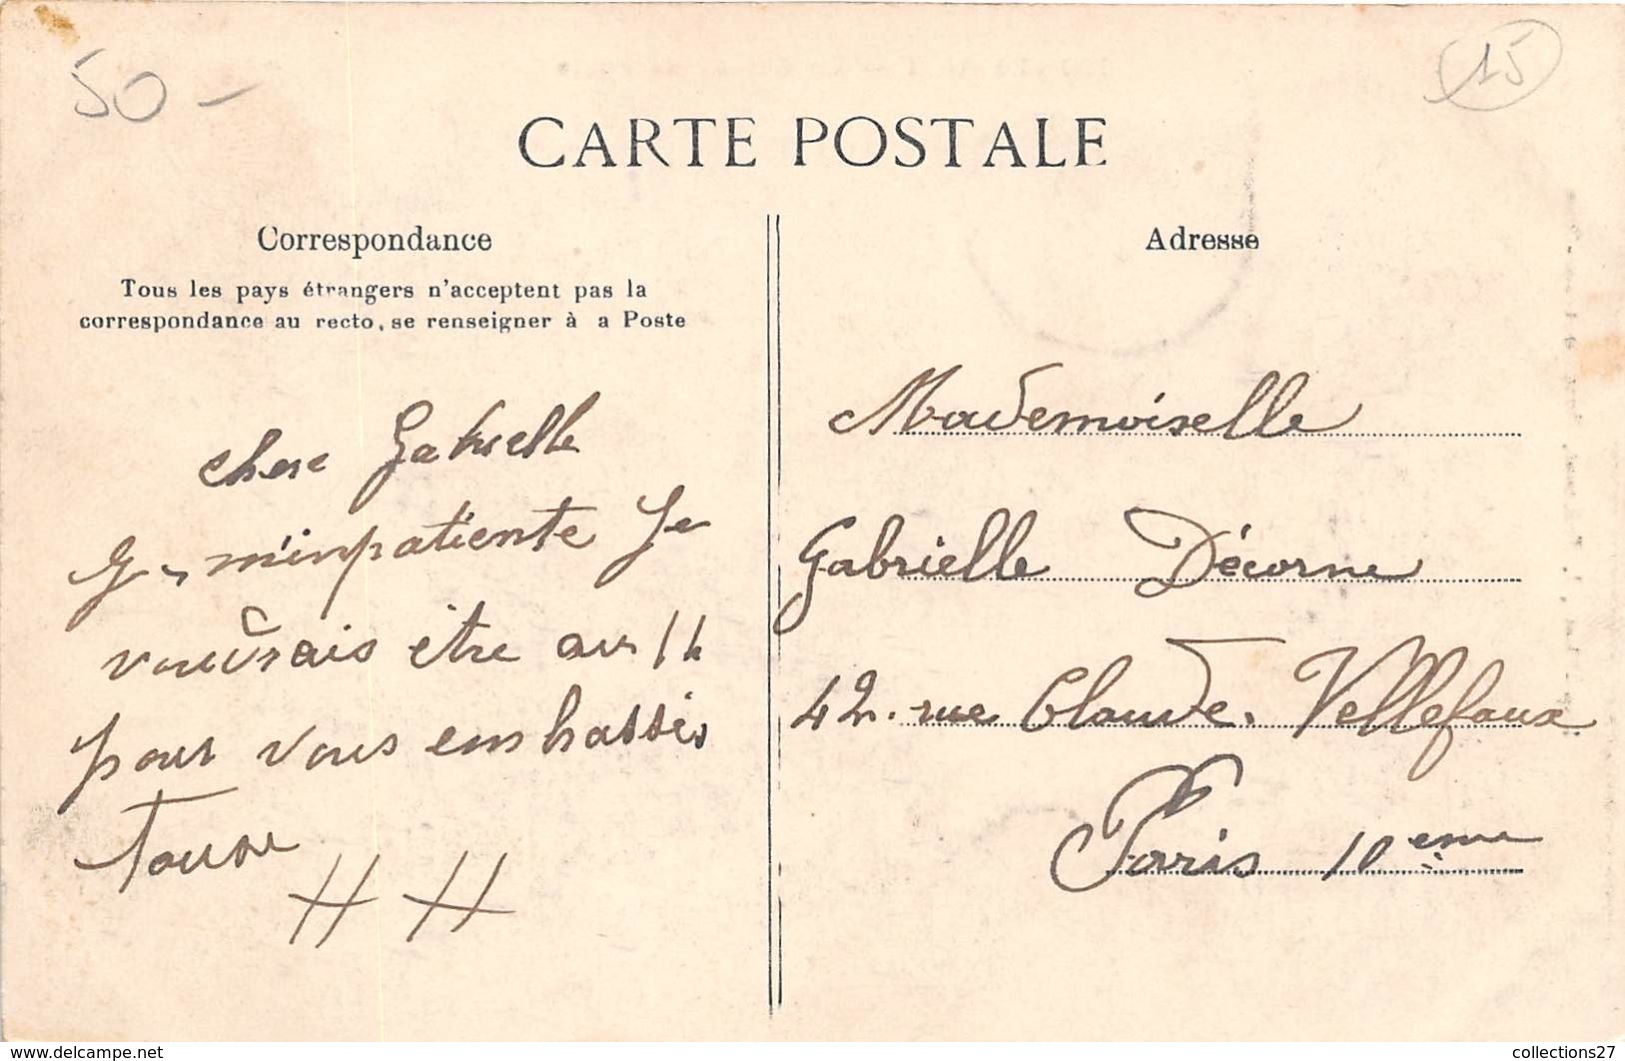 50 -
15
CARTE POSTALE
Correspondance
Tous les pays étrangers n'acceptent pas la
correspondance au recto, se renseigner à a Poste
chere Gabrielle
m'inpatiente Je
voudrais être au 14
pour vous embrasser
Adresse
Mademoiselle
Gabrielle Décorne
42. rue Claude. Vellefaux
Paris 10eme
www.delcampe.net
collections27